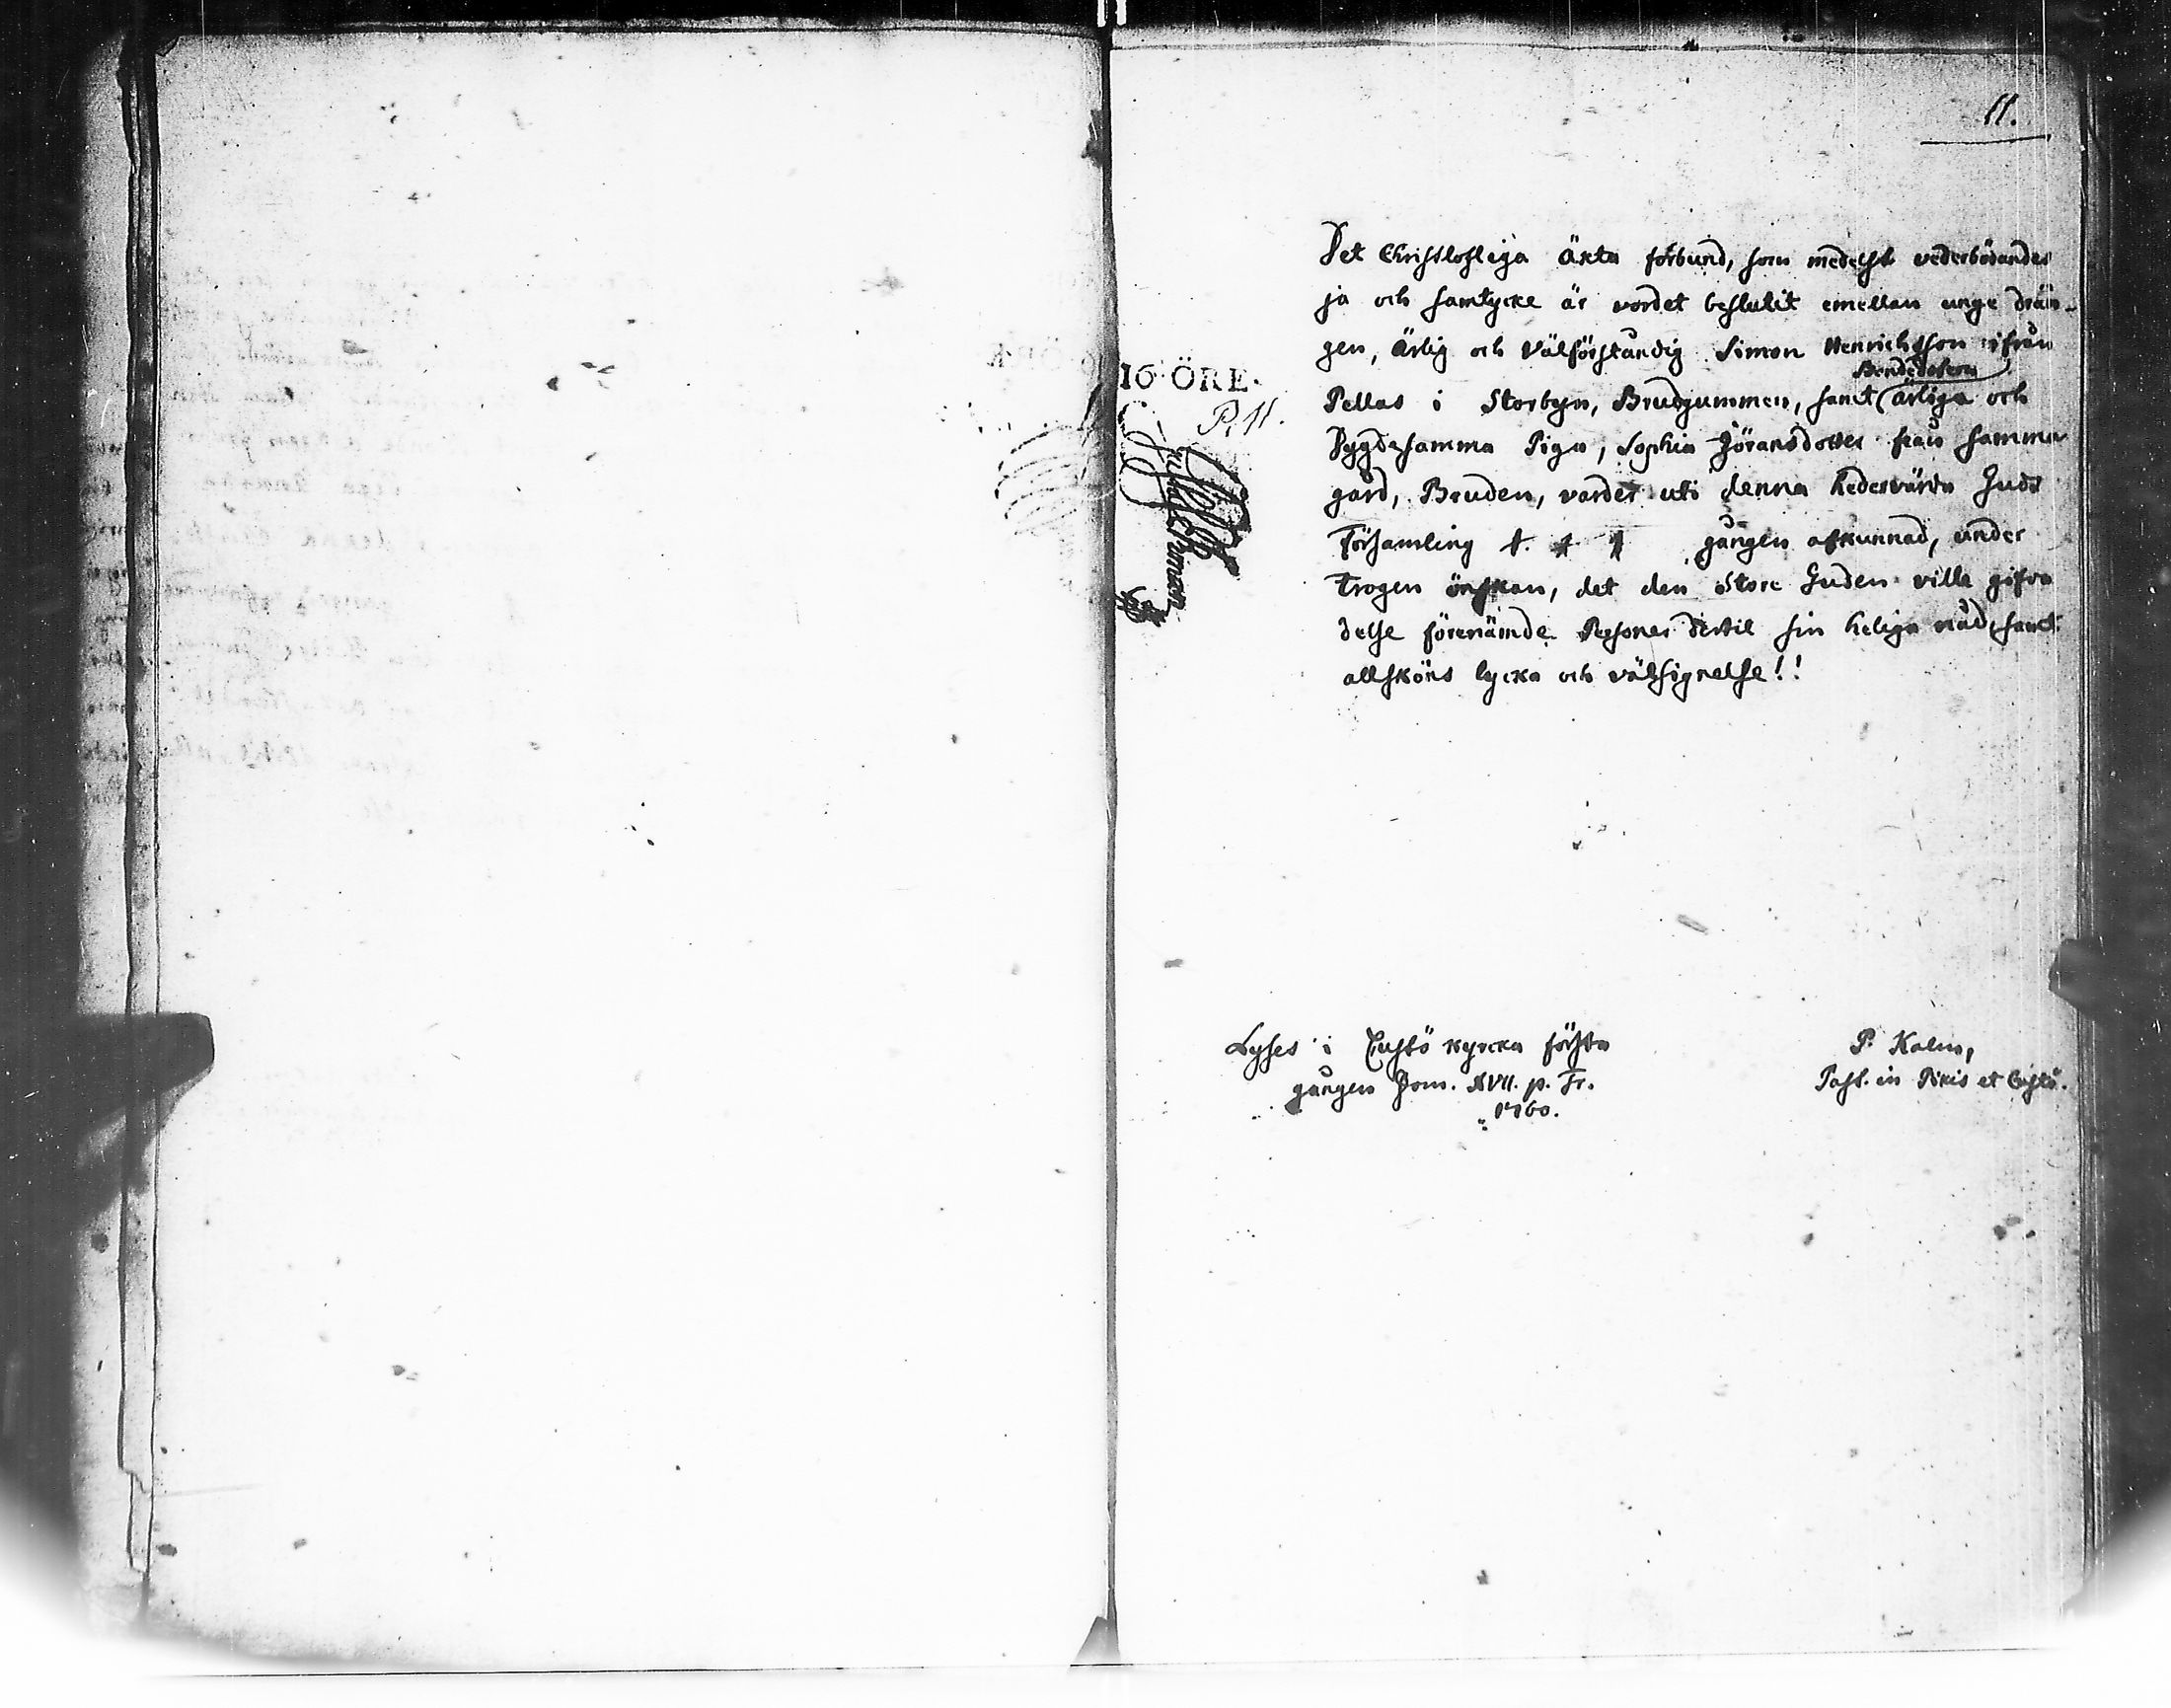 11.
Det Christlofliga äkta förbund, som medelst vederbörandes
ja och samtycke är vordet beslutit emellan unge drän-
gen, Ärlig och Välförståndig Simon Henrichsson ifrån
Pellas i Storbyn, Brudgummen, samt (ärliga och
Dygdesamma Piga, Sophia Jöransdotter från samma
gård, Bruden, varder uti denna hedervärda Guds
Församling 1. 1 1 gången afkunnad, under
trogen önskan, det den Store Guden ville gifva
desse förenämde Personer dertil sin heliga nåd, samt
allsköns lycka och välsignelse!!
16 ÖRE.
P. 11.
Lyses i Custö kyrcka första
gången Dom. XVII. p. Tr.
1760.
P. Kalm,
Past. in Pikis et Custö.